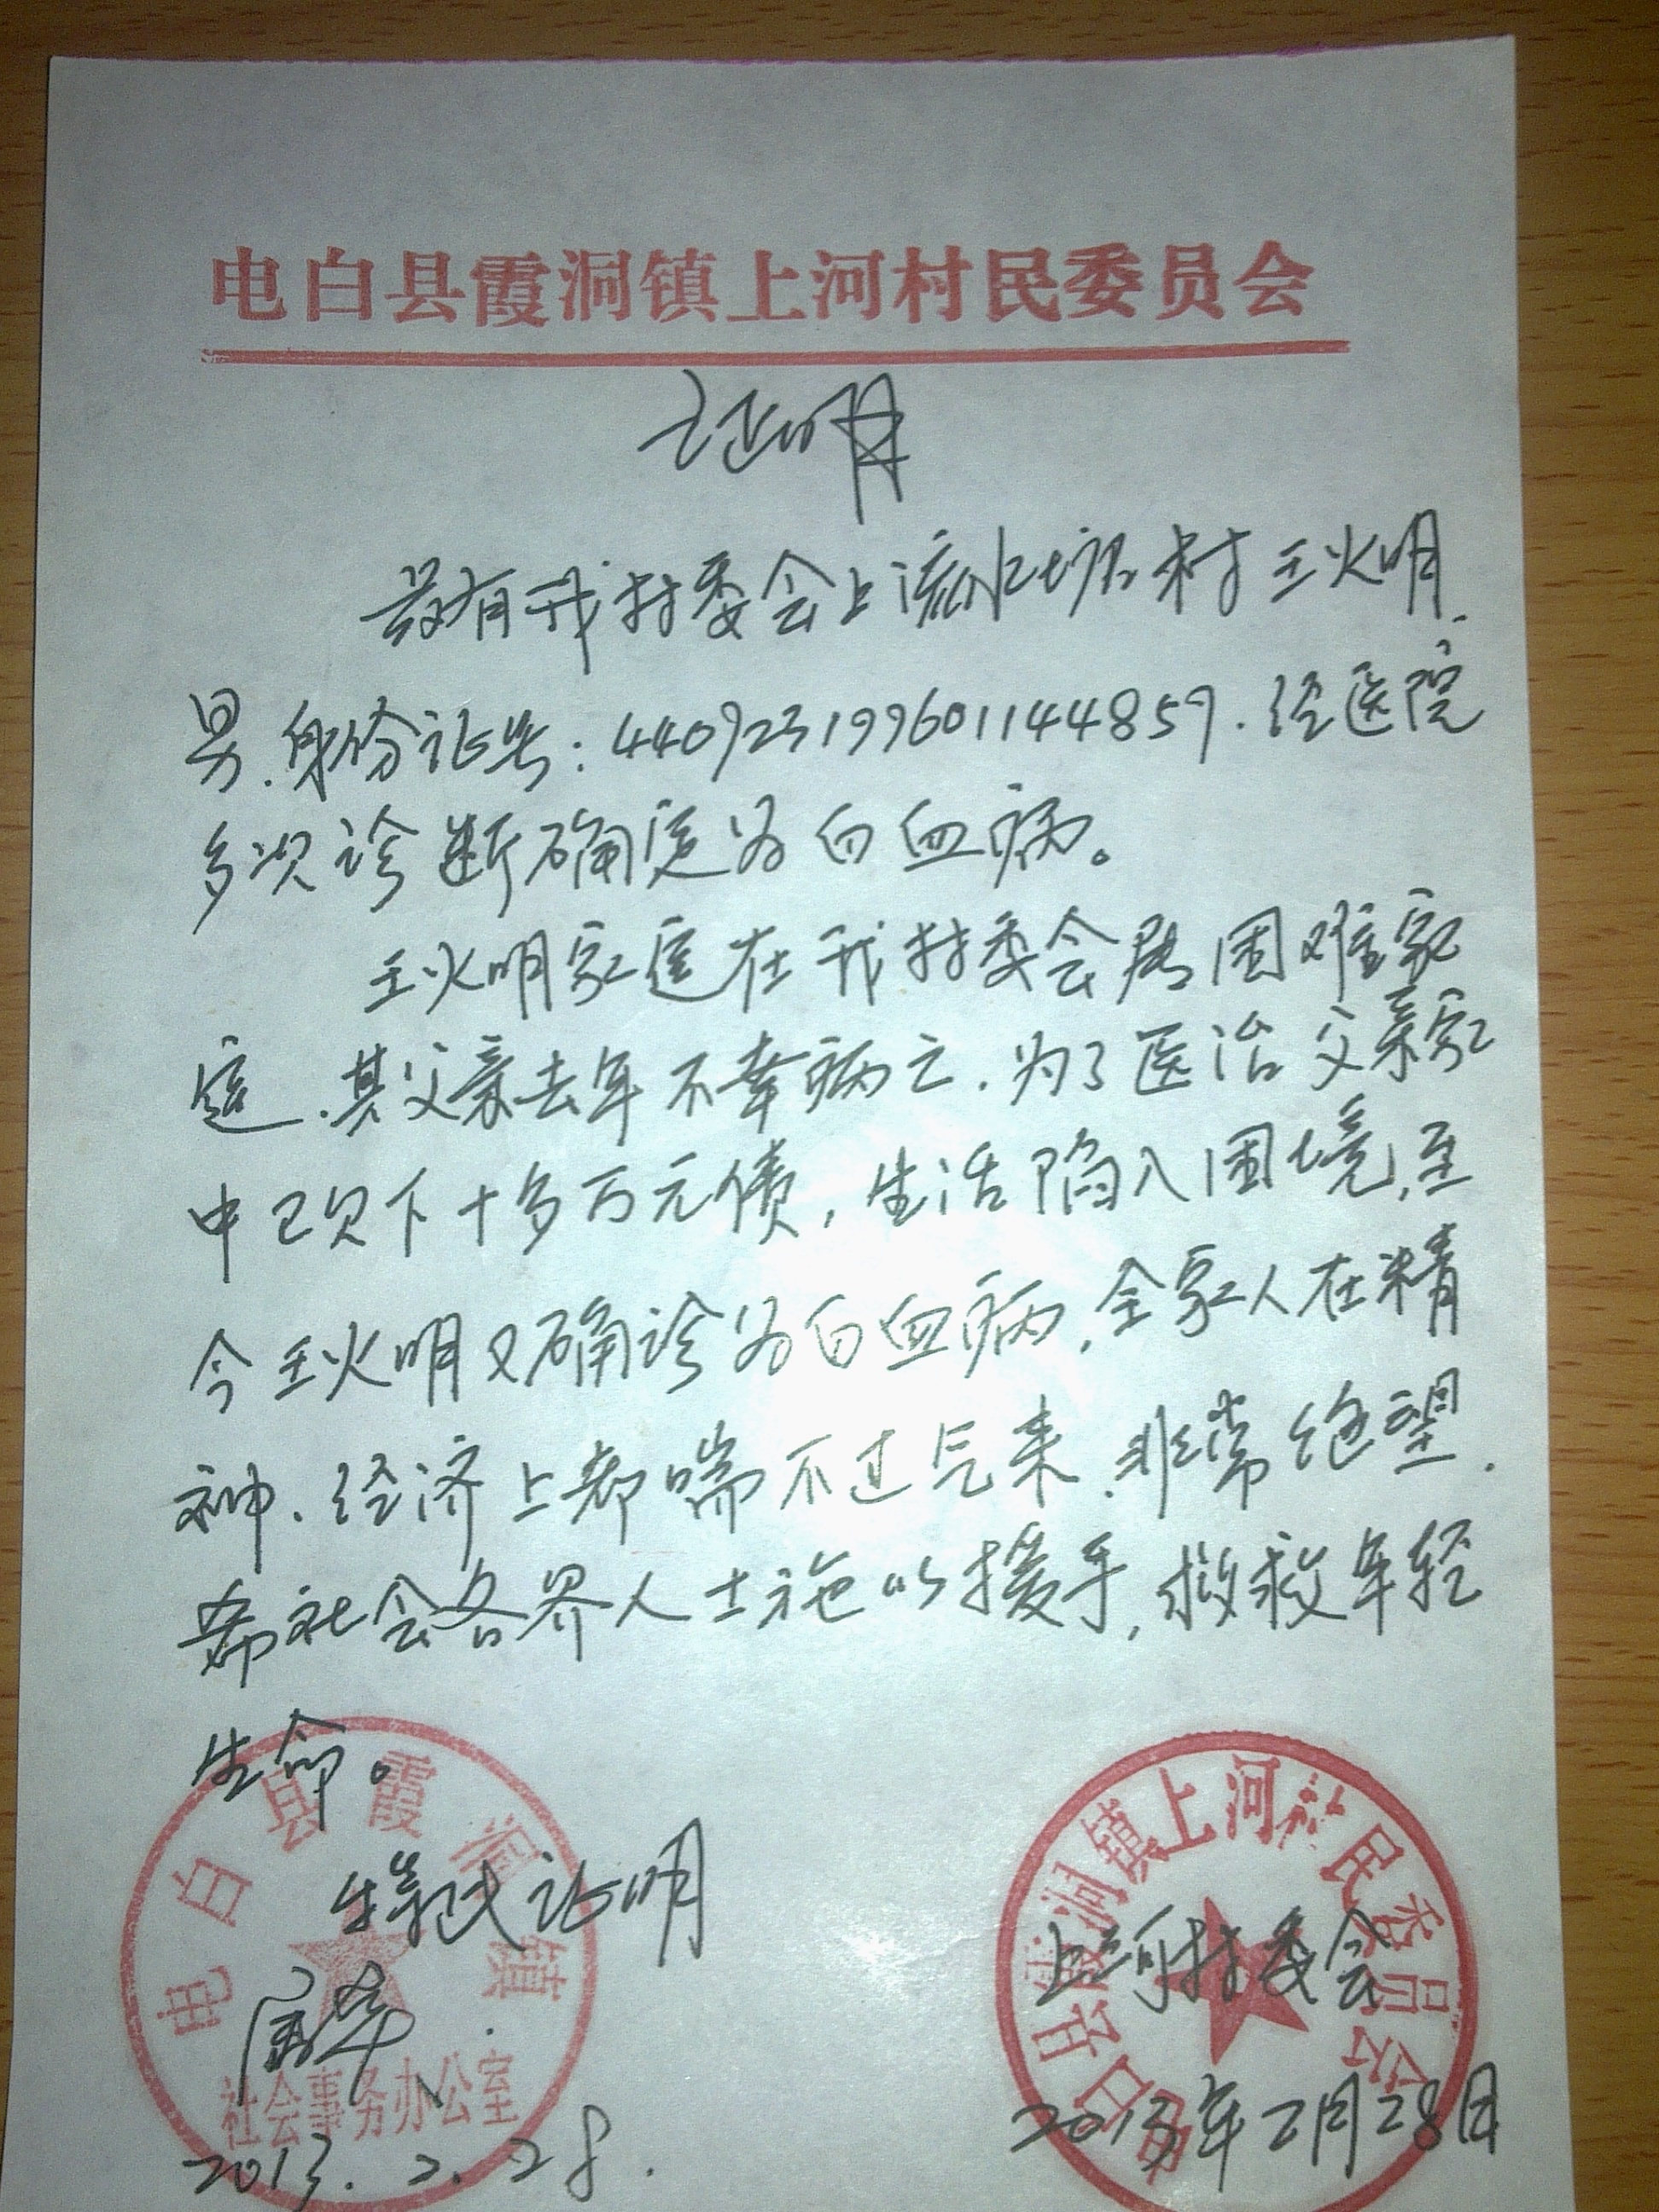 电白县霞洞镇上河村民委员会
证明
兹有我村委会上流水坡村王火明、
男、身份证号:440923199601144859.经医院
多次诊断确定为白血病。
王火明家庭在我村委会属困难家
庭、其父亲去年不幸病亡.为了医治父亲家
中已欠下十多万元债,生活陷入困境,至
今王火明又确诊为白血病,全家人在精
神、经济上都喘不过气来、非常绝望.
希社会各界人士施以援手,救救年轻
生命。
特此证明
上河村委会
2013年2月28日
属实
2013.2.28.
电白县霞洞镇
社会事务办公室
电白县霞洞镇上河村民委员会